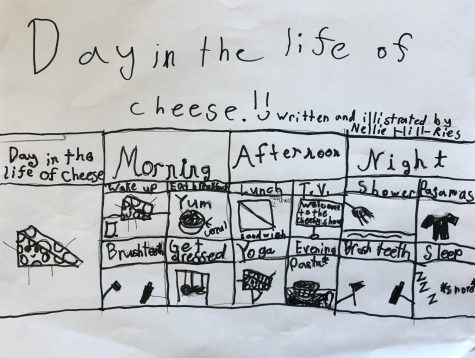 Day in the life of
cheese.!!
written and illistrated by
Nellie Hill-Ries
Day in the
life of cheese
Morning
Afternoon
Night
Wake up
Eat breakfast
Yum
Cereal
Lunch
Sandwish
T.V.
Welcome
to the
cheese show
Shower
Pajamas
Brush teeth
Get
dressed
Yoga
Evening
Pasta*
Brush teeth
Sleep
Z
Z
Z
*snore*